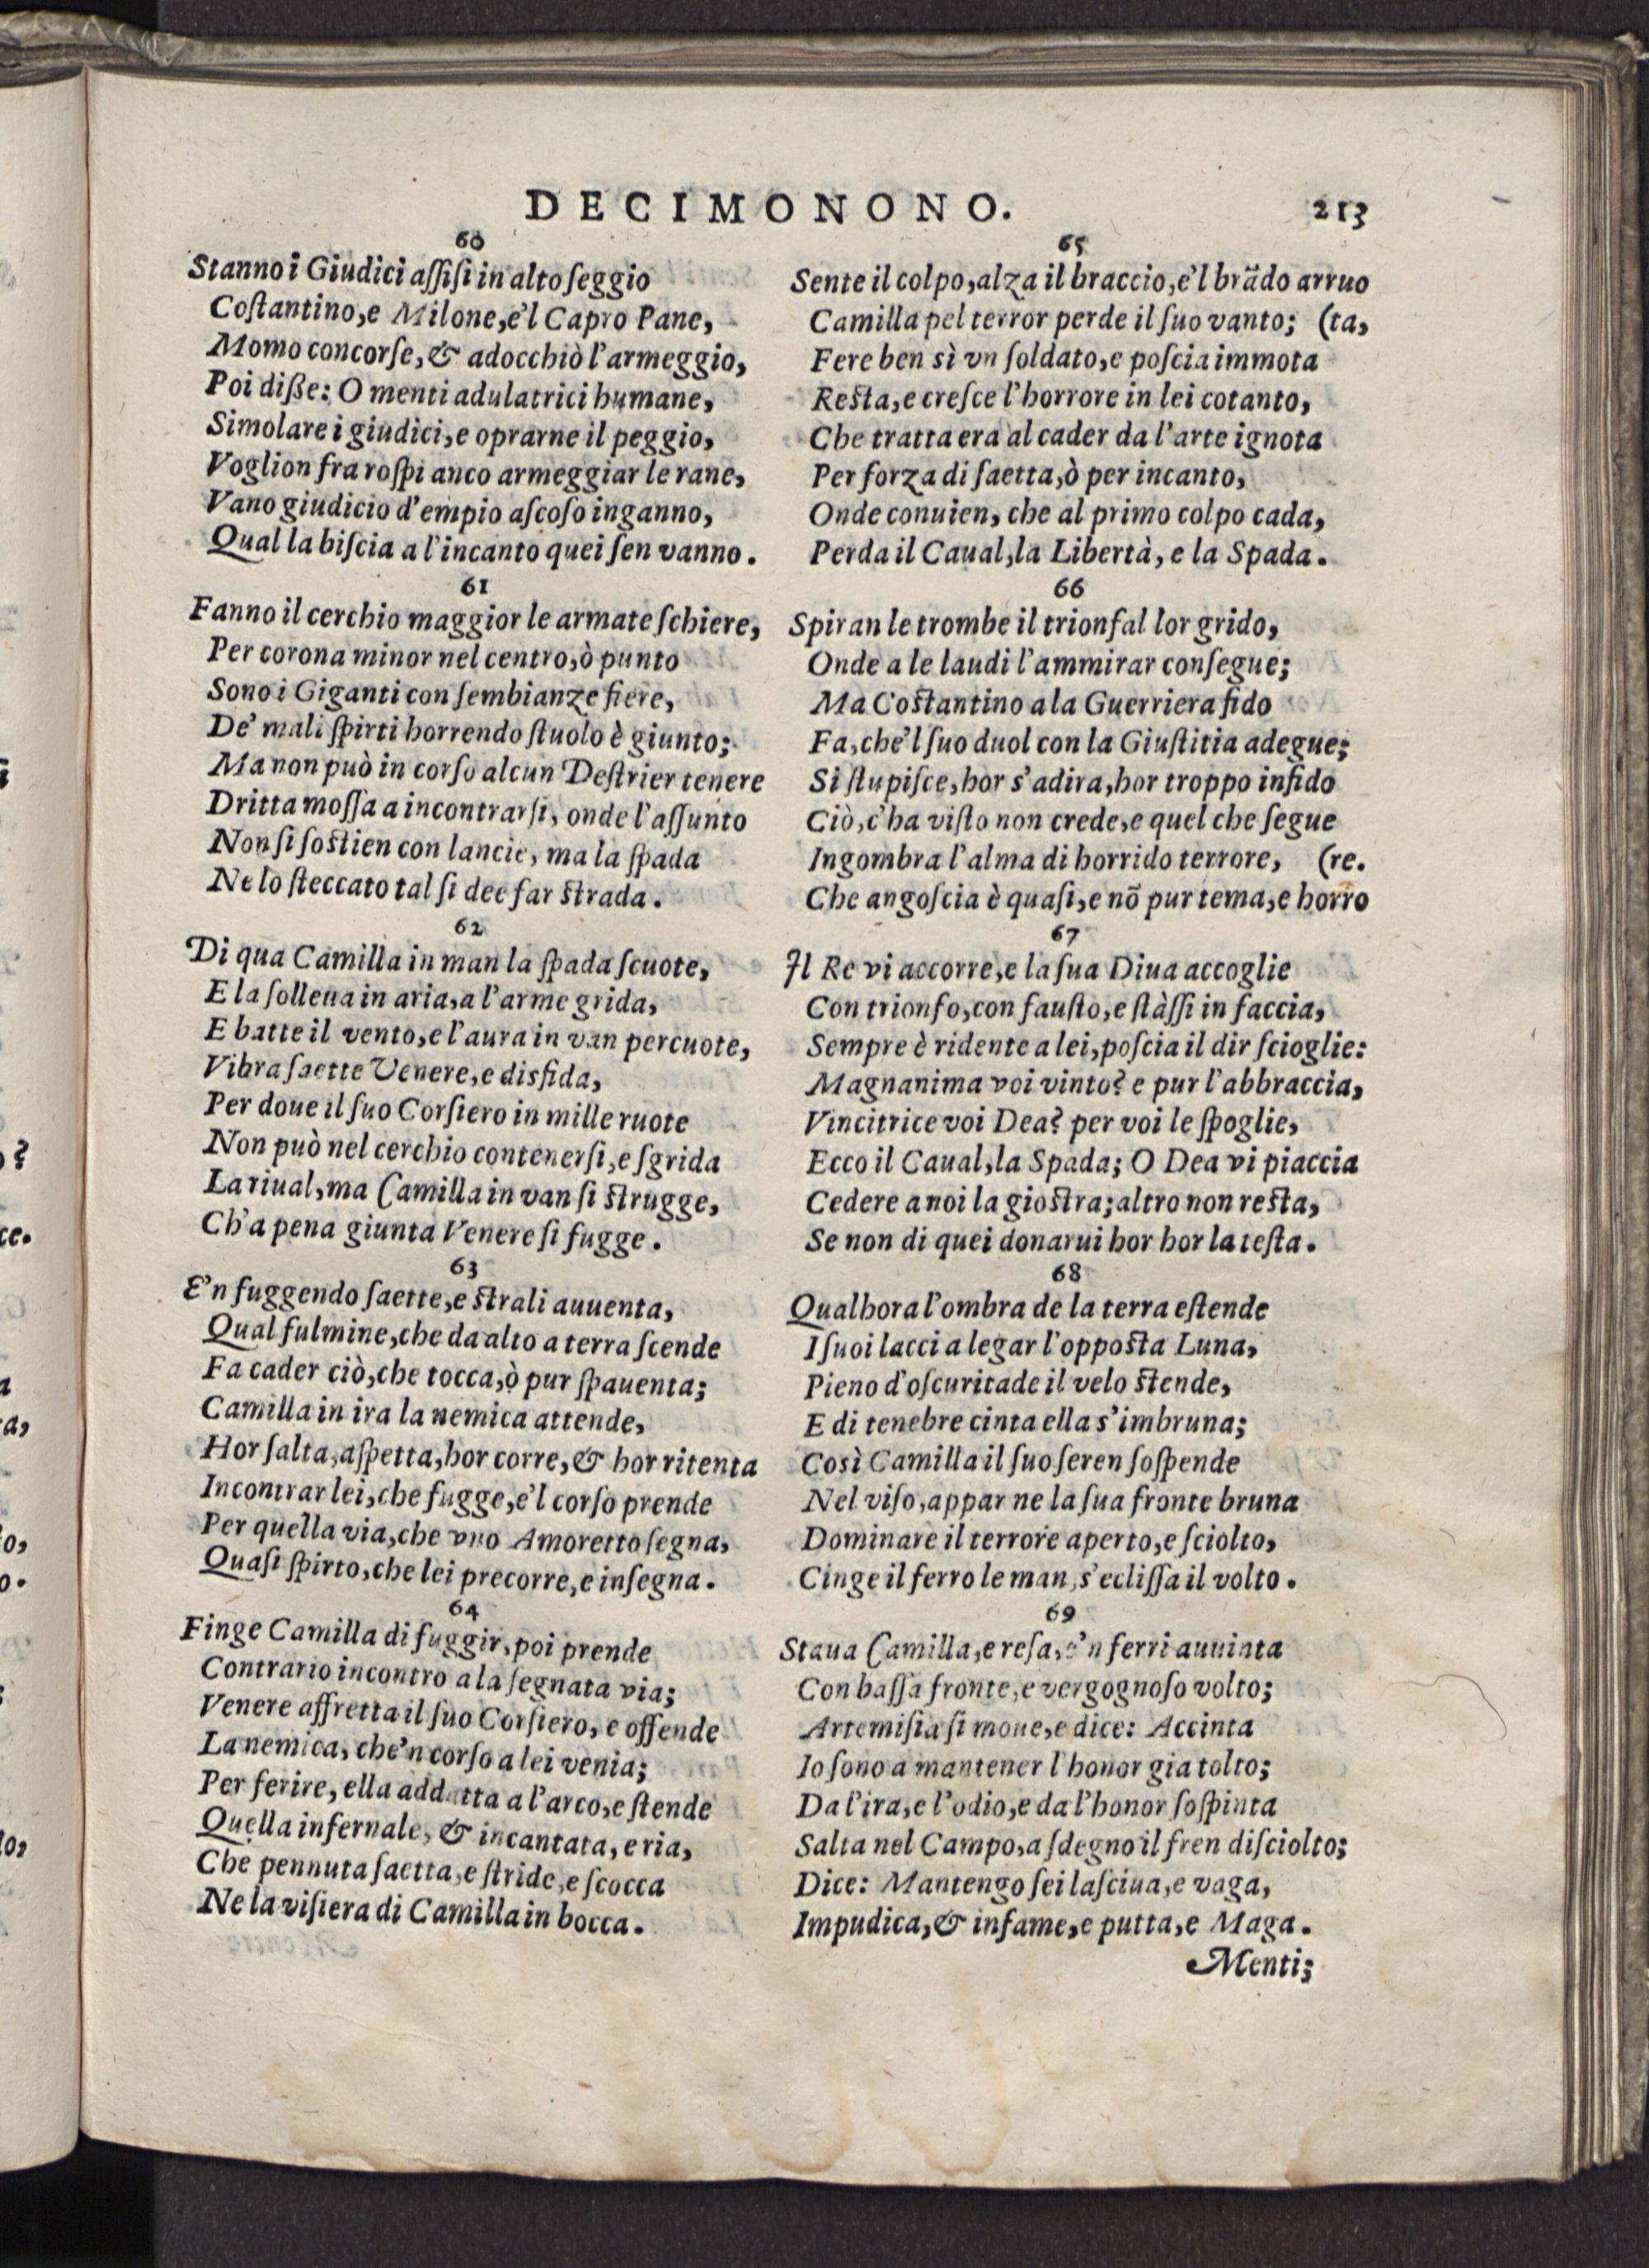 DECIMONONO. 213
60
Stanno i Giudici aſſiſi in alto ſeggio
Coſtantino, e Milone, e'l Capro Pane,
Momo concorſe, & adocchiò l'armeggio,
Poi diſſe: O menti adulatrici humane,
Simolare i giudici, e oprarne il peggio,
Voglion fra roſpi anco armeggiar le rane,
Vano giudicio d'empio aſcoſo inganno,
Qual la biſcia a l'incanto quei ſen vanno.
61
Fanno il cerchio maggior le armate ſchiere,
Per corona minor nel centro, ò punto
Sono i Giganti con ſembianze fiere,
De' mali ſpirti horrendo ſtuolo è giunto;
Ma non può in corſo alcun Deſtrier tenere
Dritta moſſa a incontrarſi, onde l'aſſunto
Non ſi ſoſtien con lancie, ma la ſpada
Ne lo ſteccato tal ſi dee far ſtrada.
62
Di qua Camilla in man la ſpada ſcuote,
E la ſolleua in aria, a l'arme grida,
E batte il vento, e l'aura in van percuote,
Vibra ſaette Venere, e disfida,
Per doue il ſuo Corſiero in mille ruote
Non può nel cerchio contenerſi, e ſgrida
La riual, ma Camilla in van ſi ſtrugge,
Ch'a pena giunta Venere ſi fugge.
63
E'n fuggendo ſaette, e ſtrali auuenta,
Qual fulmine, che da alto a terra ſcende
Fa cader ciò, che tocca, ò pur ſpauenta;
Camilla in ira la nemica attende,
Hor ſalta, aſpetta, hor corre, & hor ritenta
Incontrar lei, che fugge, e'l corſo prende
Per quella via, che vno Amoretto ſegna,
Quaſi ſpirto, che lei precorre, e inſegna.
64
Finge Camilla di fuggir, poi prende
Contrario incontro a la ſegnata via;
Venere affretta il ſuo Corſiero, e offende
La nemica, che'n corſo a lei venia;
Per ferire, ella addatta a l'arco, e ſtende
Quella infernale, & incantata, e ria,
Che pennuta ſaetta, e ſtride, e ſcocca
Ne la viſiera di Camilla in bocca.
65
Sente il colpo, alza il braccio, e'l brãdo arruo
Camilla pel terror perde il ſuo vanto; (ta,
Fere ben sì vn ſoldato, e poſcia immota
Reſta, e creſce l'horrore in lei cotanto,
Che tratta era al cader da l'arte ignota
Per forza di ſaetta, ò per incanto,
Onde conuien, che al primo colpo cada,
Perda il Caual, la Libertà, e la Spada.
66
Spiran le trombe il trionfal lor grido,
Onde a le laudi l'ammirar conſegue;
Ma Coſtantino a la Guerriera fido
Fa, che'l ſuo duol con la Giuſtitia adegue;
Si ſtupiſce, hor s'adira, hor troppo infido
Ciò, c'ha viſto non crede, e quel che ſegue
Ingombra l'alma di horrido terrore, (re.
Che angoſcia è quaſi, e nõ pur tema, e horro
67
Il Re vi accorre, e la ſua Diua accoglie
Con trionfo, con fauſto, e ſtàſſi in faccia,
Sempre è ridente a lei, poſcia il dir ſcioglie:
Magnanima voi vinto? e pur l'abbraccia,
Vincitrice voi Dea? per voi le ſpoglie,
Ecco il Caual, la Spada; O Dea vi piaccia
Cedere a noi la gioſtra; altro non reſta,
Se non di quei donarui hor hor la teſta.
68
Qualhora l'ombra de la terra eſtende
I ſuoi lacci a legar l'oppoſta Luna,
Pieno d'oſcuritade il velo ſtende,
E di tenebre cinta ella s'imbruna;
Così Camilla il ſuo ſeren ſoſpende
Nel viſo, appar ne la ſua fronte bruna
Dominare il terrore aperto, e ſciolto,
Cinge il ferro le man, s'ecliſſa il volto.
69
Staua Camilla, e reſa, e'n ferri auuinta
Con baſſa fronte, e vergognoſo volto;
Artemiſia ſi moue, e dice: Accinta
Io ſono a mantener l'honor gia tolto;
Da l'ira, e l'odio, e da l'honor ſoſpinta
Salta nel Campo, a ſdegno il fren diſciolto;
Dice: Mantengo ſei laſciua, e vaga,
Impudica, & infame, e putta, e Maga.
Menti;